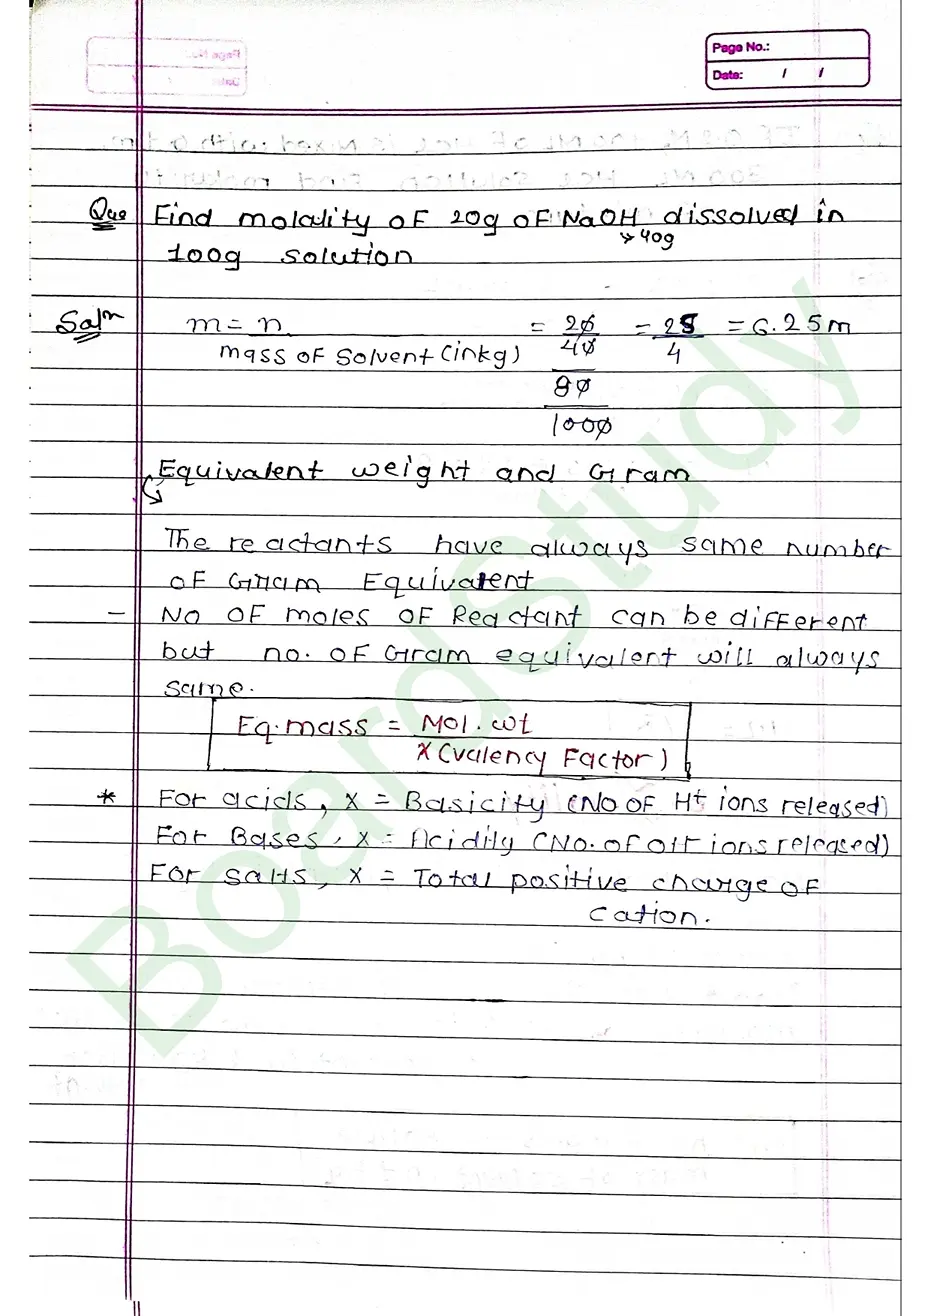 Page No.:
Date: / /
Que Find molality of 20g of NaOH dissolved in
→ 40g
100g solution
Soln m = n = 20 = 25 = 6.25m
mass of solvent (in kg) 40 4
80
1000
Equivalent weight and Gram
The reactants have always same number
of Gram Equivalent
- No of moles of Reactant can be different
but no. of Gram equivalent will always
same.
Eq. mass = Mol. wt
x (valency Factor)
* For acids, x = Basicity (No of H+ ions released)
For Bases, x = Acidily (No. of OH- ions released)
For salts, x = Total positive charge of
cation.
BoardStudy